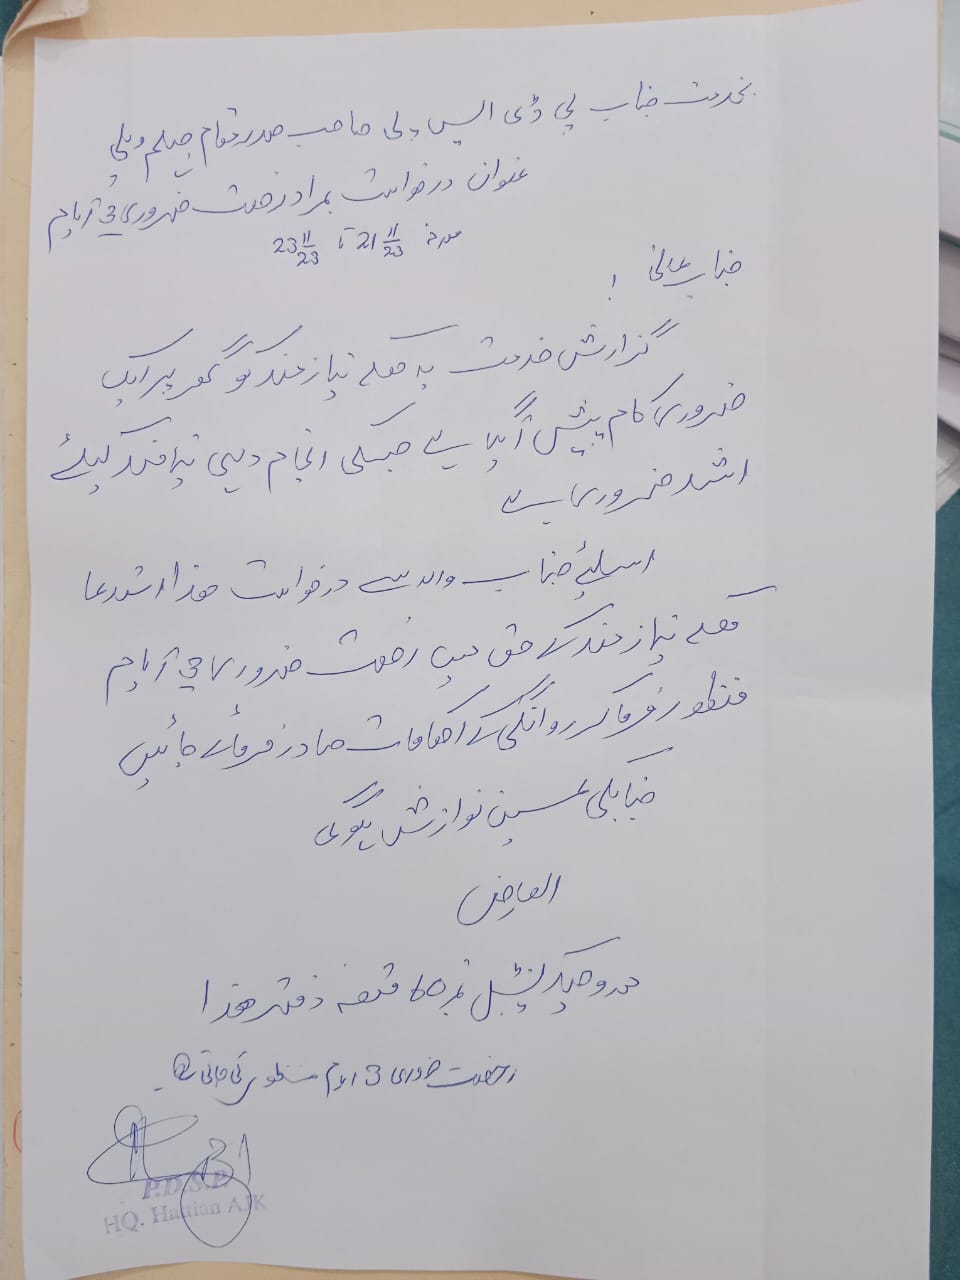 بخدمت جناب پی ڈی ایس پی صاحب صدر مقام جہلم ویلی
عنوان درخواست بمراد رخصت ضروری 3 ایام
مورخہ 21 11/23 تا 23 11/23
جناب عالی !
گزارش خدمت ہے کہ نیازمند کو گھر پر ایک
ضروری کام پیش آ گیا ہے جسکی انجام دہی نیازمند کیلئے
اشد ضروری ہے
اسلیئے جناب والہ سے درخواست ھذا استدعا
کہ نیازمند کے حق میں رخصت ضروری 3 ایام
منظور فرما کر روانگی کے احکامات صادر فرمائے جائیں
جنابکی عین نوازش ہوگی
العارض
ہیڈ کنسٹیبل نمبر 60 متعینہ دفتر ھذا
رخصت ضروری 3 ایام منظور کی جاتی ہے۔
P.D.S.P.
HQ. Hattian AJK